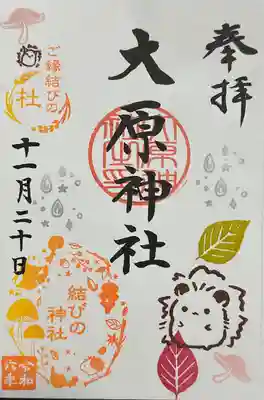 奉拝
大原神社
ご縁結びの
社
十一月二十日
結びの
神社
令和
六年